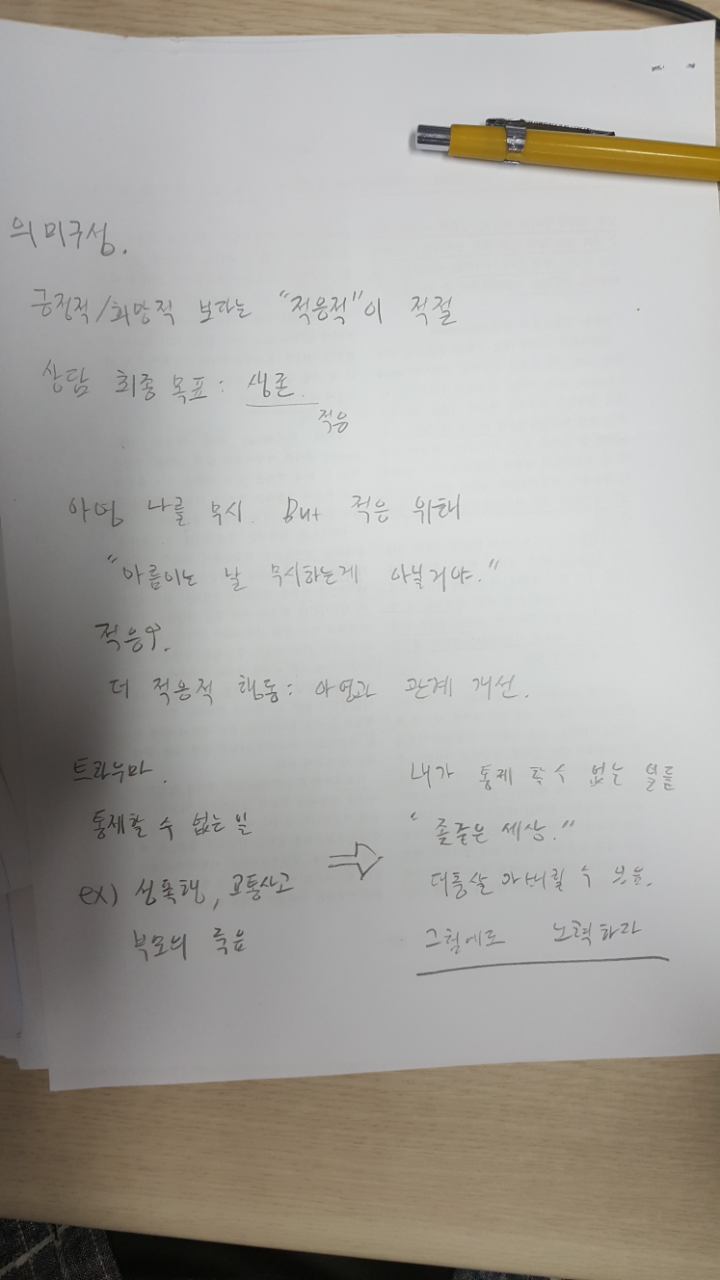 의미구성.
긍정적/희망적 보다는 "적응적"이 적절
상담 최종 목표: 생존.
적응
아영 나를 무시. But 적응 위해
"아름이는 날 무시하는게 아닐거야."
적응↑.
더 적응적 행동: 아영과 관계 개선.
트라우마.
통제할 수 없는 일
ex) 성폭행, 교통사고
부모의 죽음
⇒
내가 통제 할 수 없는 일들
" 좁은 세상."
수
그럼에도 노력하라